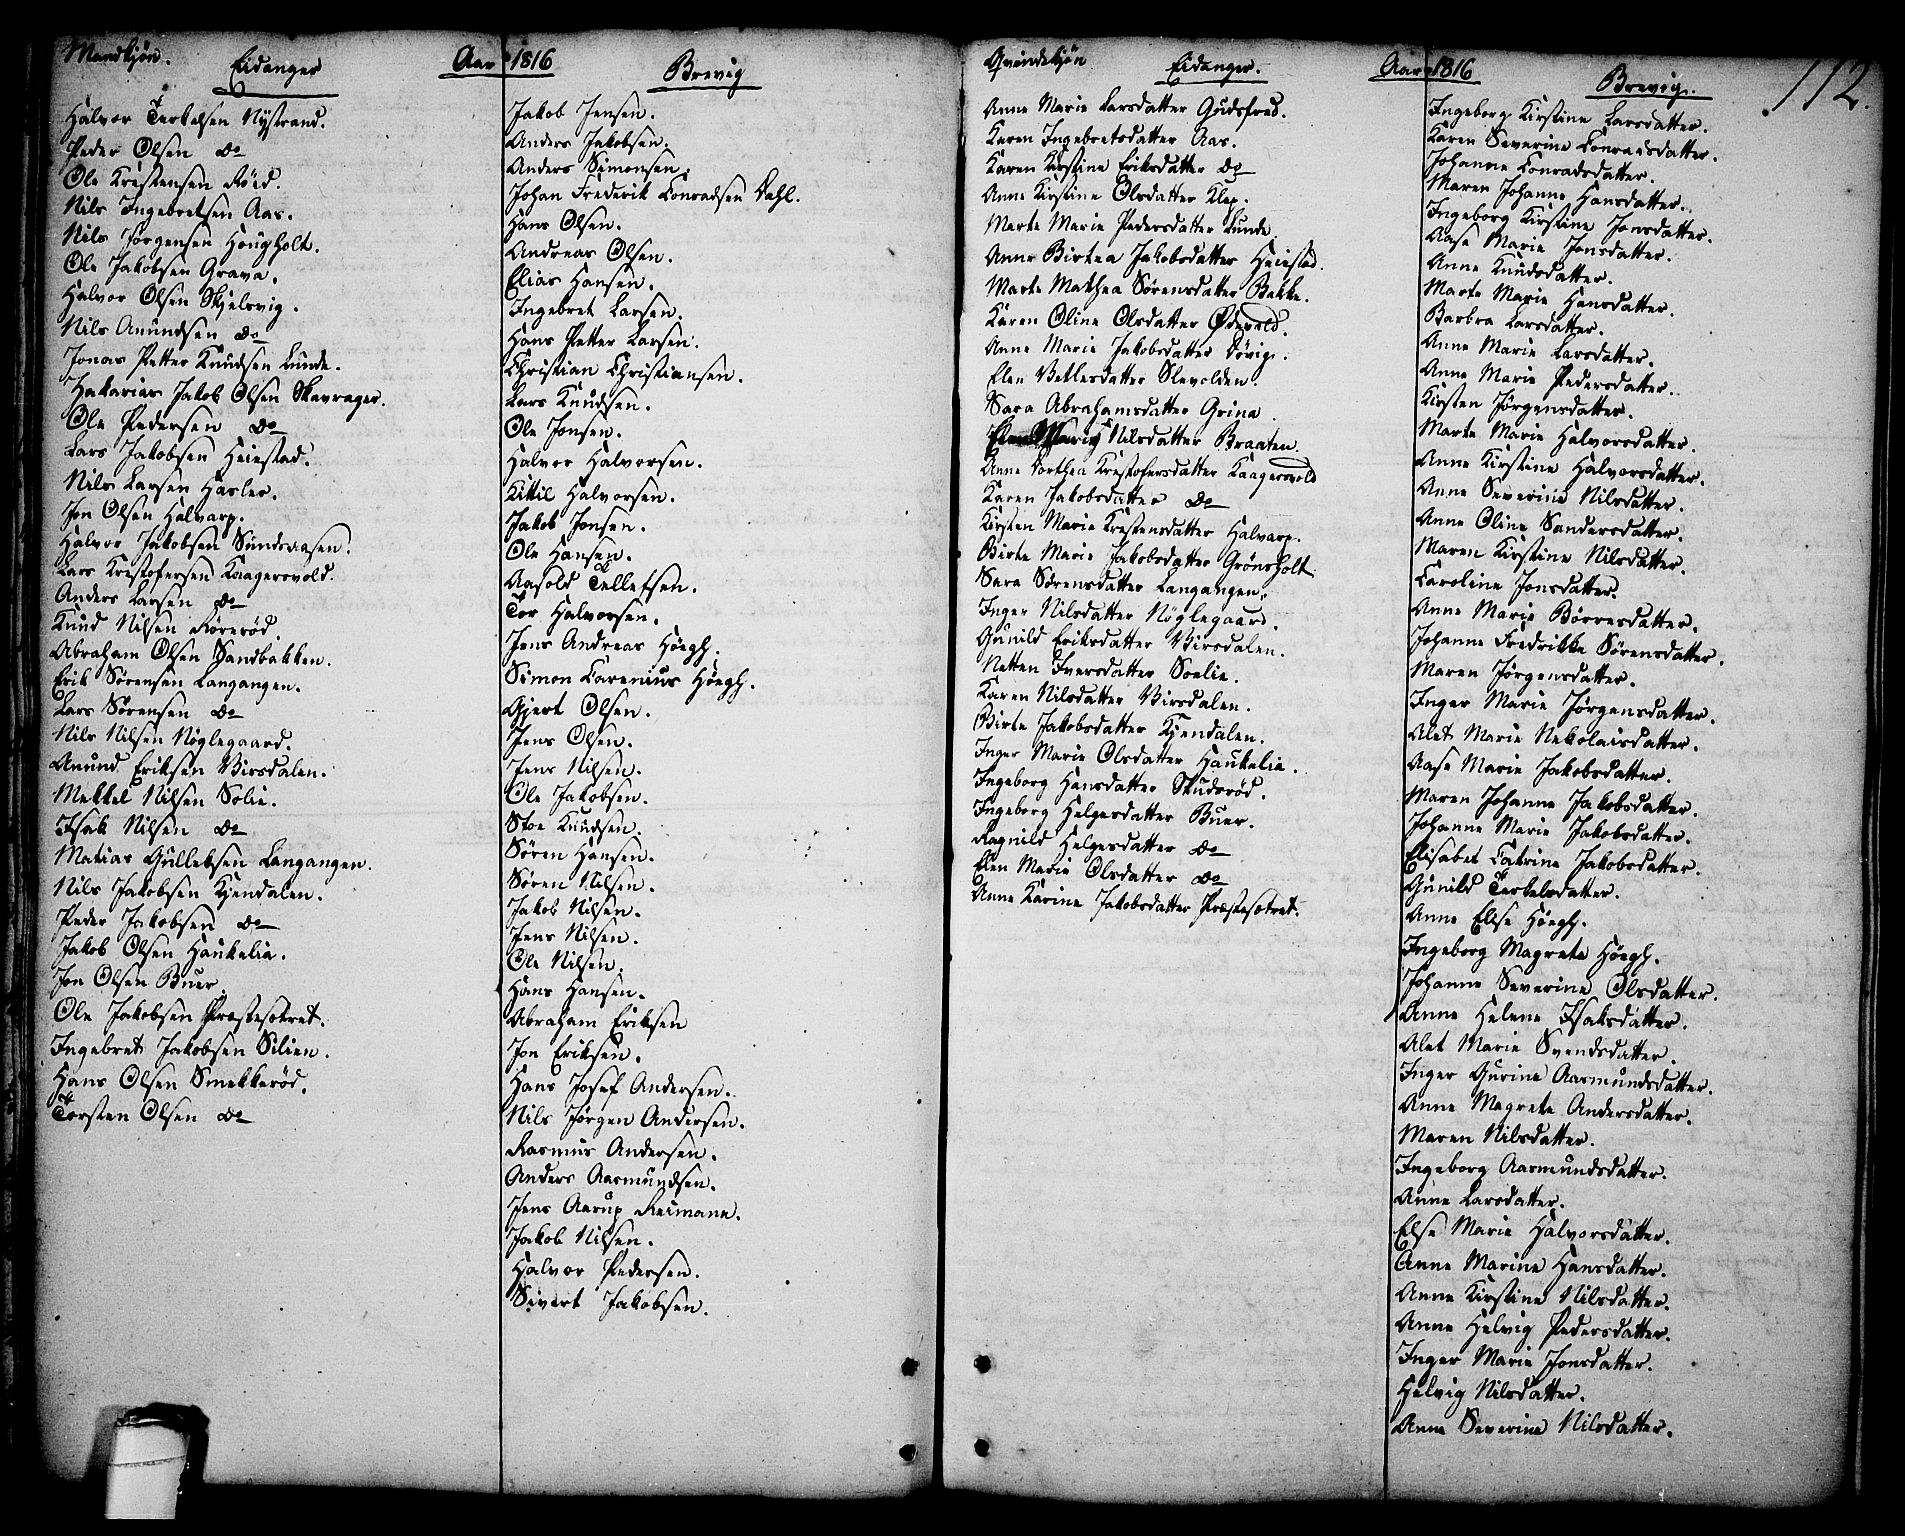 Mandkjøn.
Eidanger
Aar 1816
Brevig
Halvor Terkelsen Nystrand.
Peder Olsen do
Ole Krestensen Røed.
Nils Ingebretsen Aas.
Nils Jørgensen Hougholt.
Ole Jakobsen Grava.
Halvor Olsen Skjelsvig.
Nils Anundsen do
Jonas Petter Knudsen Lunde.
Hakarias Jakob Olsen Skavrager.
Ole Pedersen do
Lars Jakobsen Heiestad.
Nils Larsen Hasler.
Jon Olsen Halvarp.
Halvor Jakobsen Sundsaasen.
Lars Krestofersen Kaagersvold.
Anders Larsen do
Knud Nilsen Rørerød.
Abraham Olsen Sandbakken.
Erik Sørensen Langangen.
Lars Sørensen do
Nils Nilsen Nøglegaard.
Anund Eriksen Virsdalen.
Mekkel Nilsen Solie.
Isak Nilsen do
Matias Gullebsen Langangen.
Nils Jakobsen Kjendalen.
Peder Jakobsen do
Jakob Olsen Haukelia.
Jon Olsen Buer.
Ole Jakobsen Præstesætret.
Ingebret Jakobsen Silien.
Hans Olsen Smekkerød.
Torsten Olsen do
Jakob Jensen.
Anders Jakobsen.
Anders Simonsen.
Johan Frederik Conradsen Dahl.
Hans Olsen.
Andreas Olsen.
Elias Hansen.
Ingebret Larsen.
Hans Petter Larsen.
Christian Christiansen.
Lars Knudsen.
Ole Jonsen.
Halvor Halvorsen.
Kittil Halvorsen.
Jakob Jonsen.
Ole Hansen.
Aasold Tellefsen.
Tor Halvorsen.
Jens Andreas Høegh.
Simon Carenius Høegh.
Gjert Olsen.
Jens Olsen.
Jens Nilsen.
Ole Jakobsen.
Stoe Knudsen.
Søren Hansen.
Søren Nilsen.
Jakob Nilsen.
Jens Nilsen.
Ole Nilsen.
Hans Hansen.
Abraham Eriksen
Jon Eriksen.
Hans Josef Andersen.
Nils Jørgen Andersen.
Rasmus Andersen.
Anders Aasmundsen.
Jens Aarup Reimann.
Jakob Nilsen.
Halvor Pedersen.
Sivert Jakobsen.
Qvindekjøn
Eidanger.
Aar 1816
Brevig.
112.
Anne Marie Larsdatter Gudsfred.
Karen Ingebretsdatter Aas.
Karen Kirstine Eriksdatter do
Anne Kirstine Olsdatter Klep.
Marte Marie Pedersdatter Lunde.
Anne Birtea Jakobsdatter Heiestad.
Marte Mathea Sørensdatter Bakke.
Karen Oline Olsdatter Ødevald.
Anne Marie Jakobsdatter Døvig.
Elen Vetlesdatter Slevolden.
Sara Abrahamsdatter Grina.
Marie Nilsdatter Braaten.
Anne Dorthea Krestofersdatter Kaagersvold
Karen Jakobsdatter do
Kirsten Marie Krestensdatter Halvarp.
Birte Marie Jakobsdatter Grønsholt
Sara Sørensdatter Langangen.
Inger Nilsdatter Nøglegaard.
Gunild Eriksdatter Virsdalen.
Netten Iversdatter Soelie.
Karen Nilsdatter Virsdalen.
Birte Jakobsdatter Kjendalen.
Inger Marie Olsdatter Haukelia.
Ingeborg Hansdatter Skudsrød.
Ingeborg Helgesdatter Buer.
Ragnild Helgesdatter do
Elen Marie Olsdatter do
Anne Karine Jakobsdatter Præstesætret.
Ingeborg Kirstine Larsdatter.
Karen Severine Conradsdatter.
Johanne Conradsdatter.
Maren Johanne Hansdatter.
Ingeborg Kirstine Jonsdatter.
Aase Marie Jonsdatter.
Anne Knudsdatter.
Marte Marie Hansdatter.
Barbra Larsdatter.
Anne Marie Larsdatter.
Anne Marie Pedersdatter.
Kirsten Jørgensdatter.
Marte Marie Halvorsdatter.
Anne Kirstine Halvorsdatter.
Anne Severine Nilsdatter.
Anne Oline Sandersdatter.
Maren Kirstine Nilsdatter.
Caroline Jonsdatter.
Anne Marie Børresdatter.
Johanne Fredrikke Sørensdatter.
Maren Jørgensdatter.
Inger Marie Jørgensdatter.
Alet Marie Nekolaisdatter.
Aase Marie Jakobsdatter.
Maren Johanne Jakobsdatter.
Johanne Marie Jakobsdatter.
Elisabet Catrine Jakobsdatter.
Gunild Terkelsdatter.
Anne Else Høegh.
Ingeborg Magrete Høegh.
Johanne Severine Olsdatter.
Anne Helene Isaksdatter.
Alet Marie Svendsdatter.
Inger Gurine Aasmundsdatter.
Anne Magrete Andersdatter.
Maren Nilsdatter.
Ingeborg Aasmundsdatter.
Anne Larsdatter.
Else Marie Halvorsdatter.
Anne Marine Hansdatter.
Anne Kirstine Nilsdatter.
Anne Helvig Pedersdatter.
Inger Marie Jonsdatter.
Helvig Nilsdatter.
Anne Severine Nilsdatter.